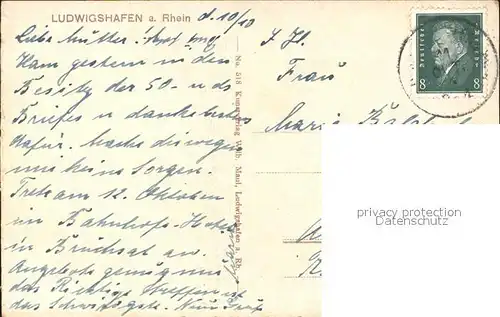 LUDWIGSHAFEN a. Rhein d. 10/10
Liebe Mutter!
Kam gestern in den
Besitz der 50.- u. ds
Briefes u danke bestens
dafür. Mache dir wegen
mir keine Sorgen.
Trete am 12. Oktober
im Bahnhof-Hotel
in Bruchsal an.
Angebote genug nur
das Richtige treffen ist
das Schwierigste.
No. 518 Kunstverlag Wilh. Maul, Ludwigshafen a. Rh.
Frau
Maria
Deutsches Reich
8 8
privacy protection
Datenschutz